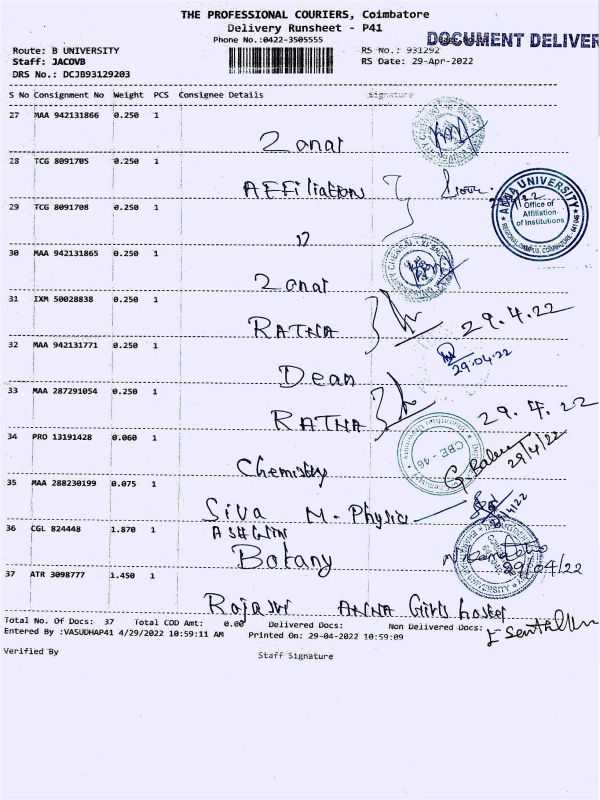 THE PROFESSIONAL COURIERS, Coimbatore
Delivery Runsheet - P41
Phone No.:0422-3505555
DOCUMENT DELIVER
Route: B UNIVERSITY
RS No.: 931292
Staff: JACOVB
RS Date: 29-Apr-2022
DRS No.: DCJB93129203
S No Consignment No Weight PCS Consignee Details Signature
27 MAA 942131866 0.250 1
Zonal
28 TCG 8091705 0.250 1
Affiliation
ANNA UNIVERSITY
Office of
Affiliation
of Institutions
REGIONAL CAMPUS, COIMBATORE
29 TCG 8091708 0.250 1
30 MAA 942131865 0.250 1
Zonal
31 IXM 50028838 0.250 1
RATNA 29.4.22
32 MAA 942131771 0.250 1
29.04.22
Dean
33 MAA 287291054 0.250 1
RATNA 29.4.22
34 PRO 13191428 0.060 1
CBE - 46
29/4/22
Chemistry
35 MAA 288230199 0.075 1
Siva M. Physics
36 CGL 824448 1.870 1
ASHWIN
Botany
29/04/22
37 ATR 3098777 1.450 1
Rajasri ANNA Girls hostel
Total No. Of Docs: 37 Total COD Amt: 0.00 Delivered Docs: Non Delivered Docs:
Entered By :VASUDHAP41 4/29/2022 10:59:11 AM Printed On: 29-04-2022 10:59:09
Verified By Staff Signature